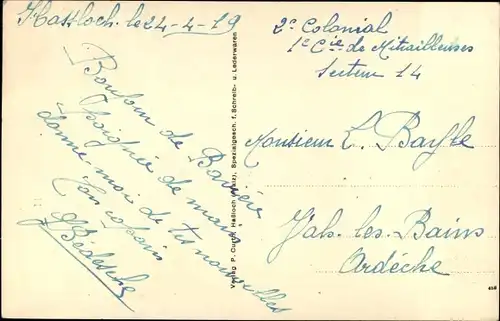 Hassloch le 24-4-19
Bonjour de Bavière
Poignée de main
donne-moi de tes nouvelles
Ton copain
2e Colonial
1e Cie de Mitrailleuses
Secteur 14
Monsieur L. Bayle
Vals-les-Bains
Ardèche
Verlag P. Curth, Haßloch (Pfalz), Spezialgesch. f. Schreib- u. Lederwaren